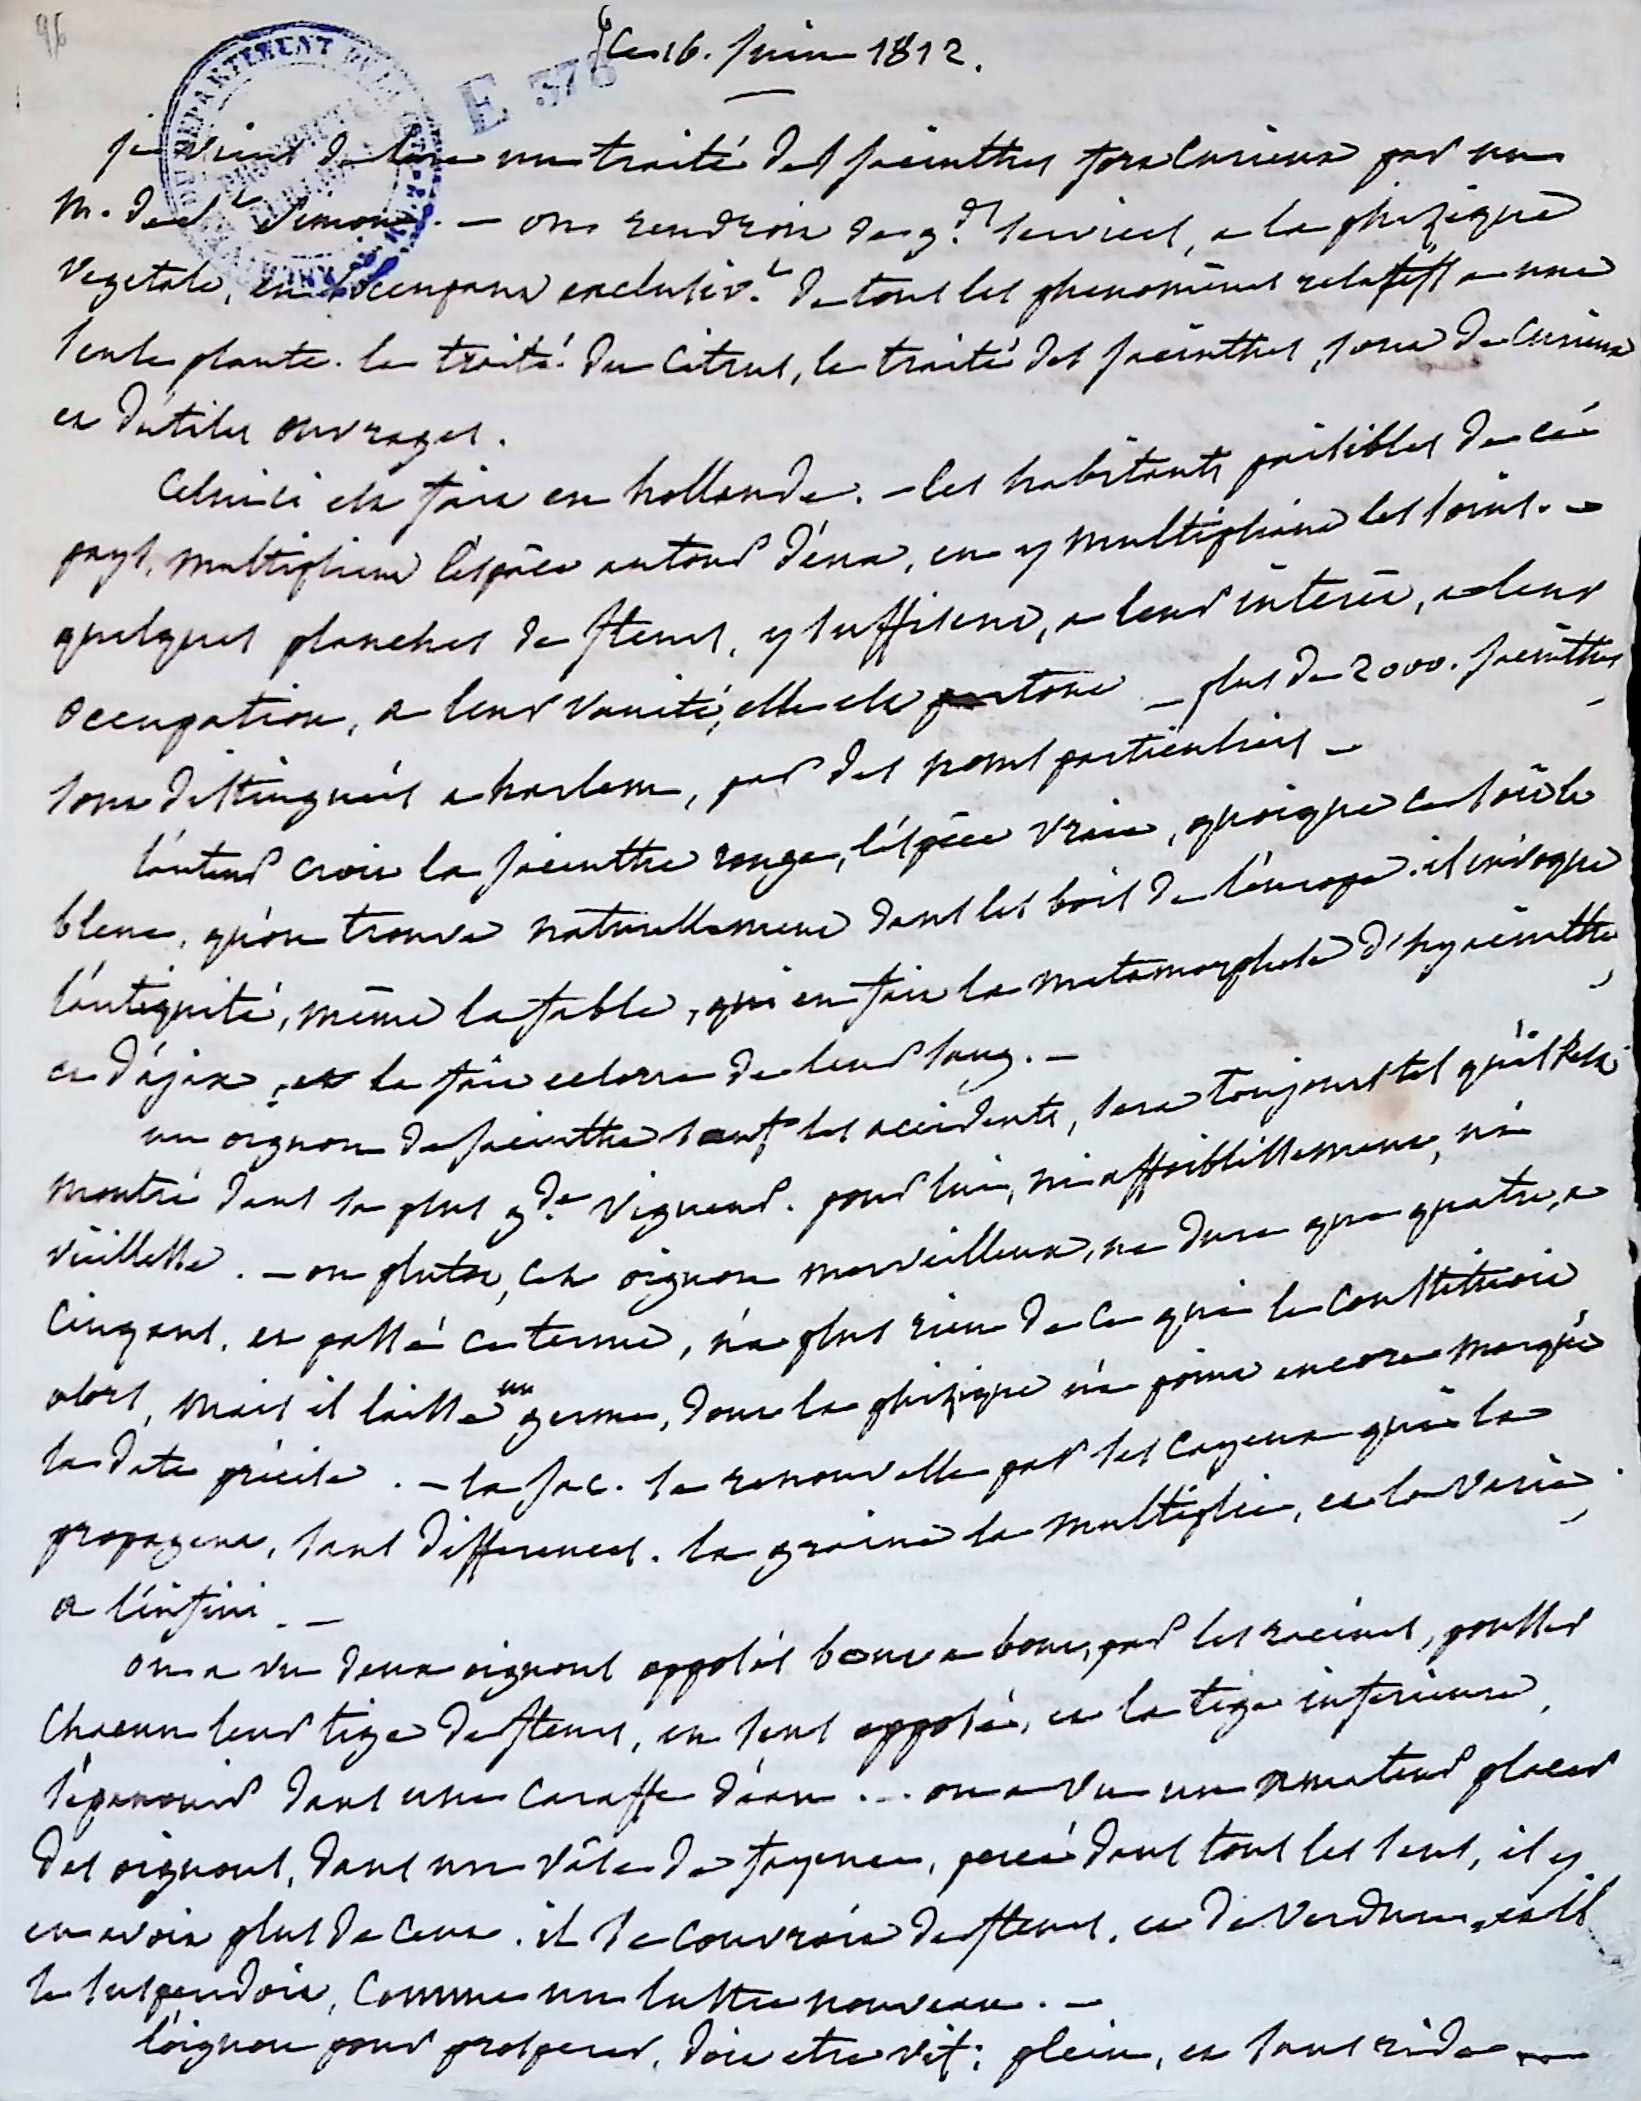 96
Ce 16. Juin 1812.
E 378
je viens de lire un traité des jacinthes fort curieux par un
M. de St Simon. — on rendroit de gds services, a la phizique
vegetale, en s'occupant exclusivt de tous les phenomènes relatifs a une
seule plante. le traité du Citrus, le traité des jacinthes, sont de curieux
et d'utiles ouvrages.
Celui ci est fait en hollande. — les habitants paisibles de ce
pays, multiplient l'espèce autour d'eux, en y multipliant les soins. —
quelques planches de fleurs, y suffisent, a leur intérêt, a leur
occupation, a leur vanité, elle est partout — plus de 2000. jacinthes
sont distinguées a harlem, par des noms particuliers —
l'auteur croit la jacinthe rouge, l'espèce vraie, quoique ce soit la
bleue, qu'on trouve naturellement dans les bois de l'europe. il invoque
l'antiquité, même la fable, qui en fait la metamorphose d'hyacinthe
et d'ajax, et la fait eclorre de leur sang. —
un oignon de jacinthe sauf les accidents, sera toujours tel qu'il s'est
montré dans sa plus gde vigueur. pour lui, ni affoiblissement, ni
vieillesse. — ou plutot, cet oignon merveilleux, ne dure que quatre, a
cinq ans, et passé ce terme, n'a plus rien de ce qui le constituoit
alors, mais il laisse un germe, dont la phizique n'a point encore marqué
la date précise. — la jac. se renouvelle par ses cayeux qui la
propagent, sans differences. la graine la multiplie, et la varie
a l'infini. —
on a vu deux oignons opposés bout a bout, par les racines, pousser
chacun leur tige de fleurs, en sens opposé, et la tige inferieure,
s'épanouir dans une caraffe d'eau... on a vu un amateur placer
des oignons, dans un vâse de fayence, percé dans tous les sens, il y
en avoit plus de cent. il se couvroit de fleurs, et de verdure, et il
le suspendoit, comme un lustre nouveau. —
l'oignon pour prosperer, doit etre vif, plein, et sans rides